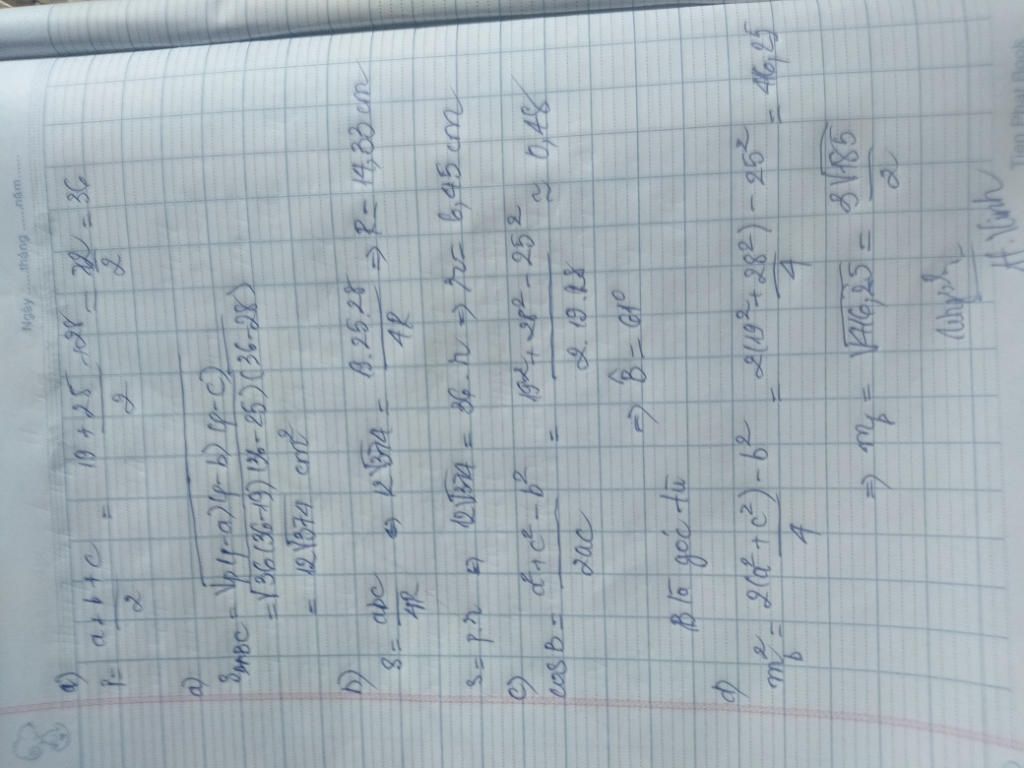 Ngày ...... tháng ...... năm ......
a) p = (a + b + c)/2 = (19 + 25 + 28)/2 = 72/2 = 36
a) S△ABC = √(p(p-a)(p-b)(p-c))
= √(36(36-19)(36-25)(36-28))
= 12√374 cm²
b) S = abc/4R ⇔ 12√374 = 19.25.28/4R ⇒ R = 14,33 cm
S = p.r ⇔ 12√374 = 36.r ⇒ r = 6,45 cm
c) cos B = (a² + c² - b²)/2ac = (19² + 28² - 25²)/2.19.28 ≈ 0,48
⇒ B̂ = 61°
B là góc tù
d) m_b² = (2(a² + c²) - b²)/4 = (2(19² + 28²) - 25²)/4 = 416,25
⇒ m_b = √416,25 = 3√185/2
Tiến Phát Book